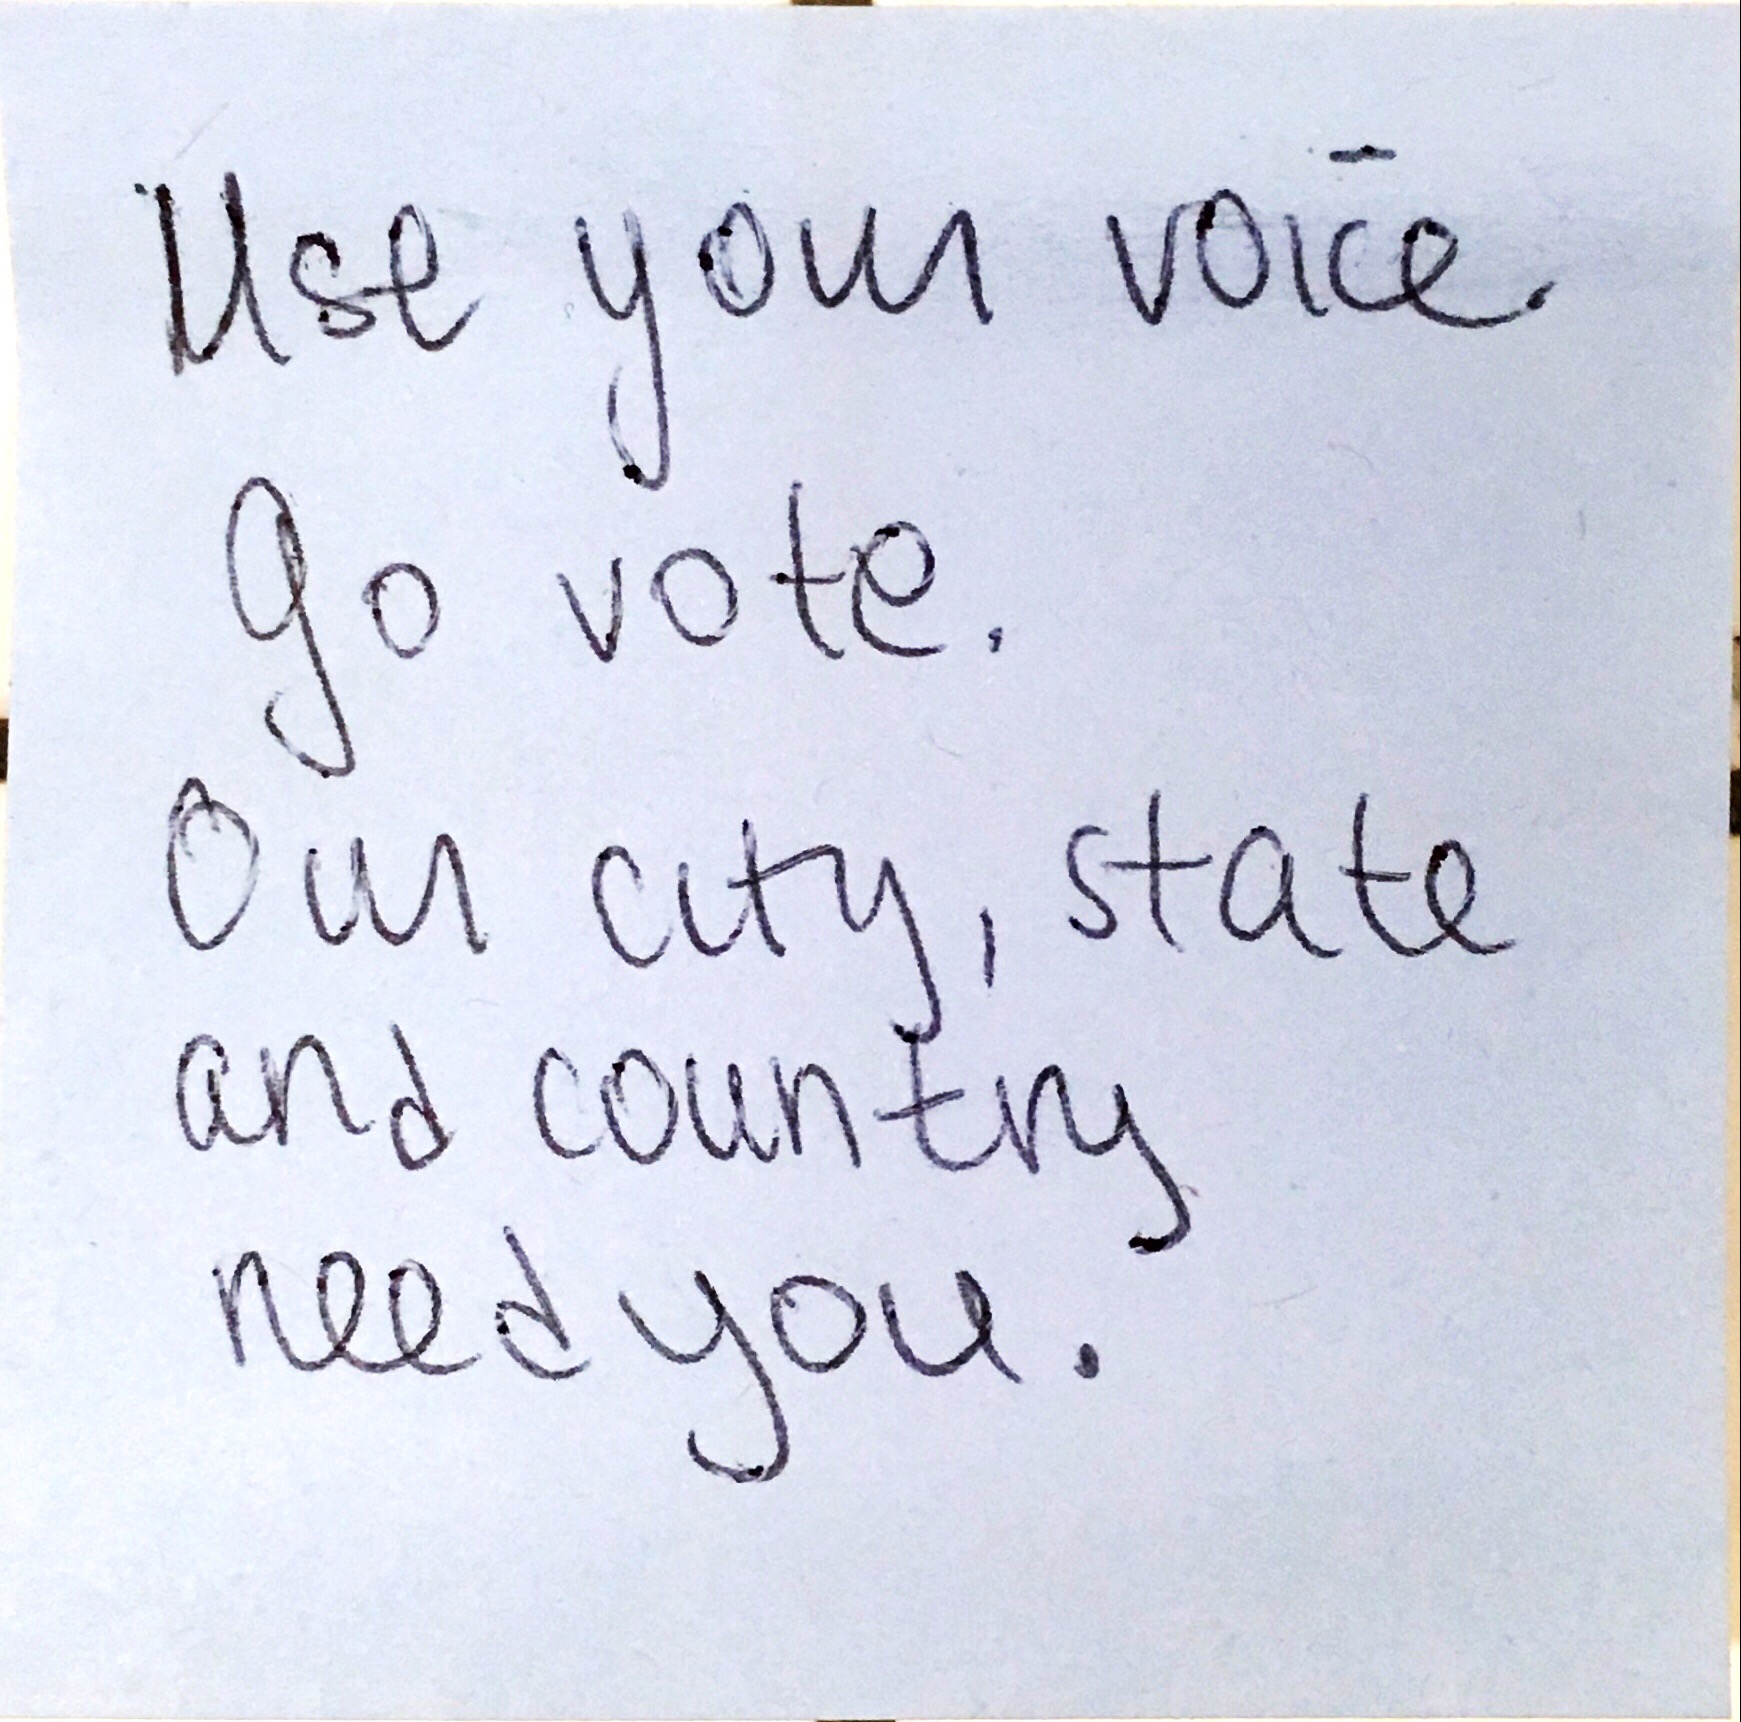 Use your voice.
Go vote.
Our city, state
and country
need you.